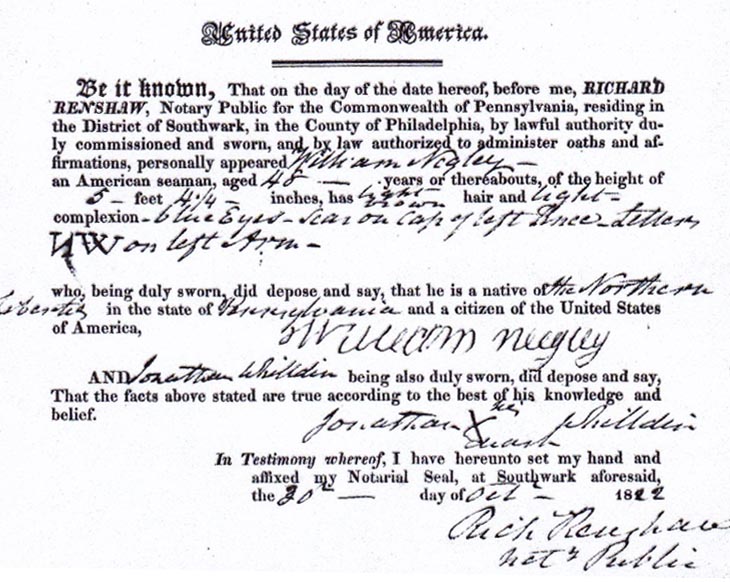 United States of America.
Be it known, That on the day of the date hereof, before me, RICHARD
RENSHAW, Notary Public for the Commonwealth of Pennsylvania, residing in
the District of Southwark, in the County of Philadelphia, by lawful authority du-
ly commissioned and sworn, and by law authorized to administer oaths and af-
firmations, personally appeared William Negley -
an American seaman, aged 48 - years or thereabouts, of the height of
5 - feet 4 1/4 - inches, has light brown hair and light -
complexion - blue Eyes - scar on Cap of left knee - Letters
on left Arm -
who, being duly sworn, did depose and say, that he is a native of the Northern
Liberties in the state of Pennsylvania and a citizen of the United States
of America,
William neegley
AND Jonathan Whilldin being also duly sworn, did depose and say,
That the facts above stated are true according to the best of his knowledge and
belief.
Jonathan X his mark Whilldin
In Testimony whereof, I have hereunto set my hand and
affixed my Notarial Seal, at Southwark aforesaid,
the 30th - day of Oct - 1822
Rich Renshaw
Noty Public